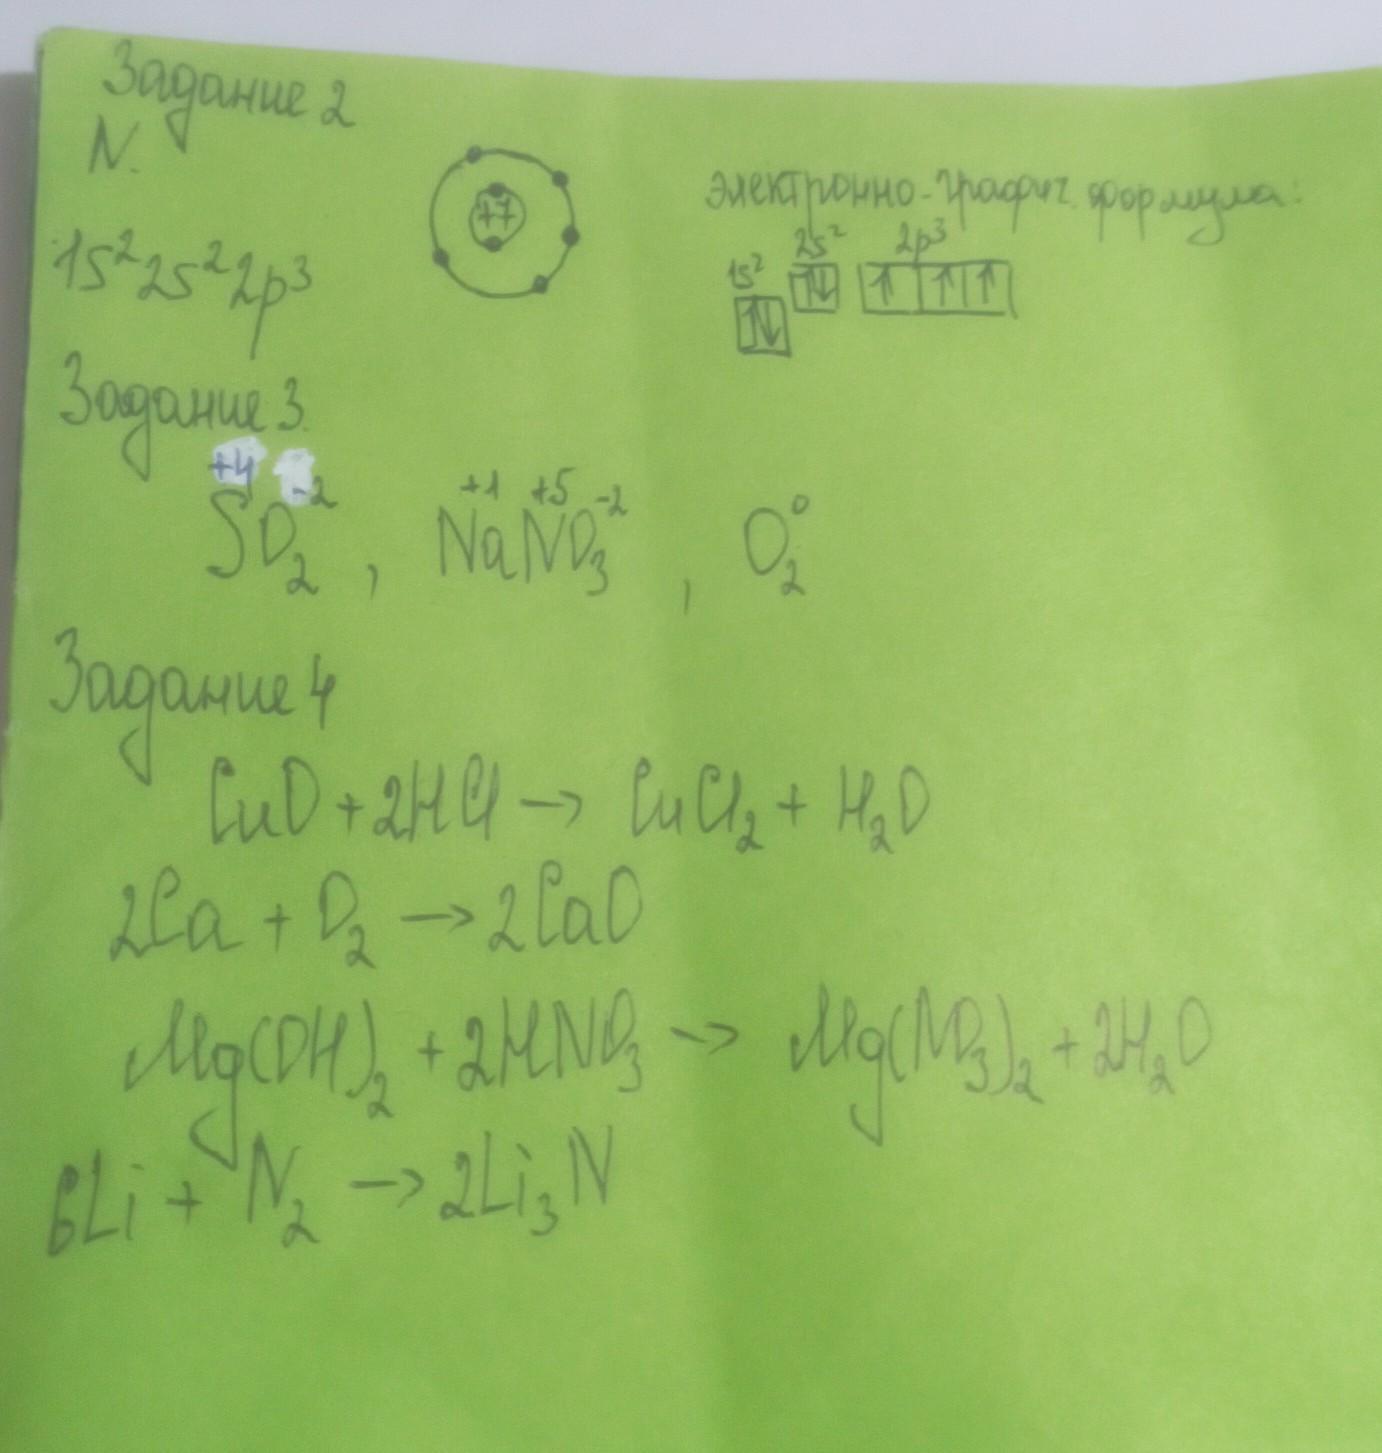 Задание 2
N.
+7
1s²2s²2p³
электронно-графич. формула:
1s² 2s² 2p³
↑↓ ↑↓ ↑ ↑ ↑
Задание 3.
+4 -2 +1 +5 -2 0
SO₂, NaNO₃, O₂
Задание 4
CuO + 2HCl → CuCl₂ + H₂O
2Ca + O₂ → 2CaO
Mg(OH)₂ + 2HNO₃ → Mg(NO₃)₂ + 2H₂O
6Li + N₂ → 2Li₃N